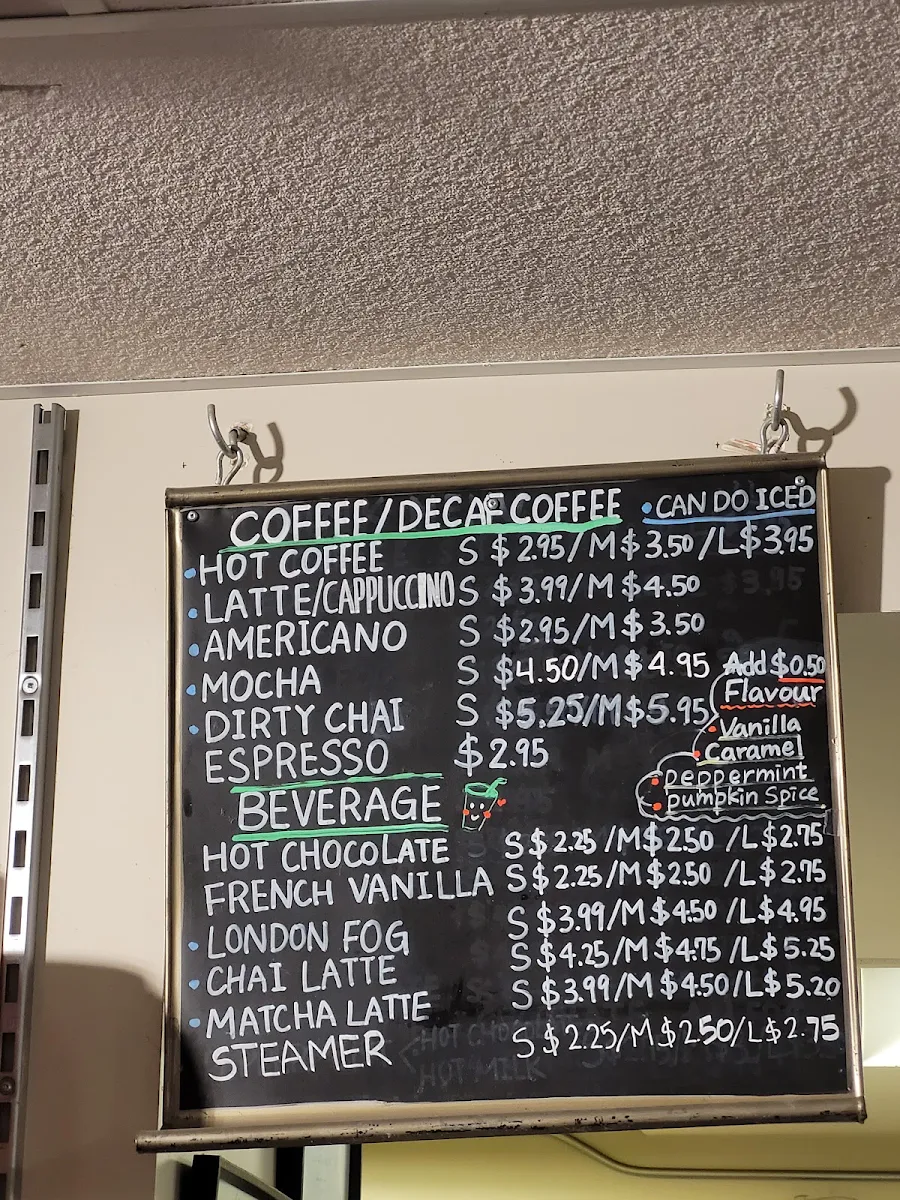 COFFEE/DECAF COFFEE •CAN DO ICED
•HOT COFFEE S $2.95/M$3.50/L$3.95
•LATTE/CAPPUCCINO S $3.99/M$4.50
•AMERICANO S $2.95/M$3.50
•MOCHA S $4.50/M$4.95
•DIRTY CHAI S $5.25/M$5.95
ESPRESSO $2.95
Add $0.50
Flavour
•Vanilla
•Caramel
•Peppermint
•pumpkin Spice
BEVERAGE
HOT CHOCOLATE S$2.25/M$2.50/L$2.75
FRENCH VANILLA S$2.25/M$2.50/L$2.75
•LONDON FOG S$3.99/M$4.50/L$4.95
•CHAI LATTE S$4.25/M$4.75/L$5.25
•MATCHA LATTE S$3.99/M$4.50/L$5.20
STEAMER S$2.25/M$2.50/L$2.75